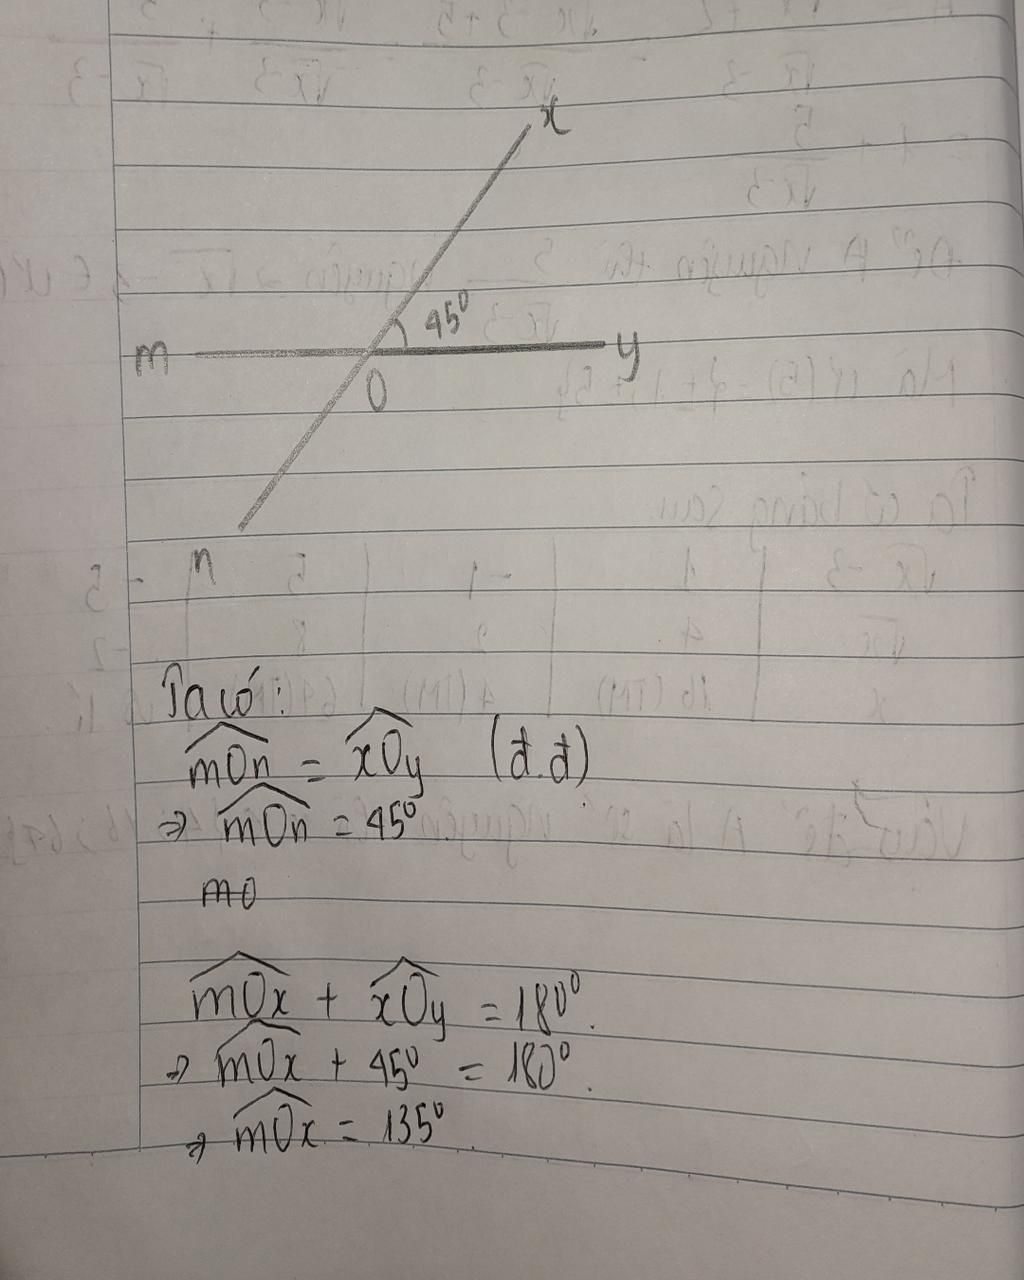 x
45⁰
m
y
O
n
Ta có:
mOn = xOy (đ.đ)
=> mOn = 45⁰
mO
mOx + xOy = 180⁰.
=> mOx + 45⁰ = 180⁰.
=> mOx = 135⁰